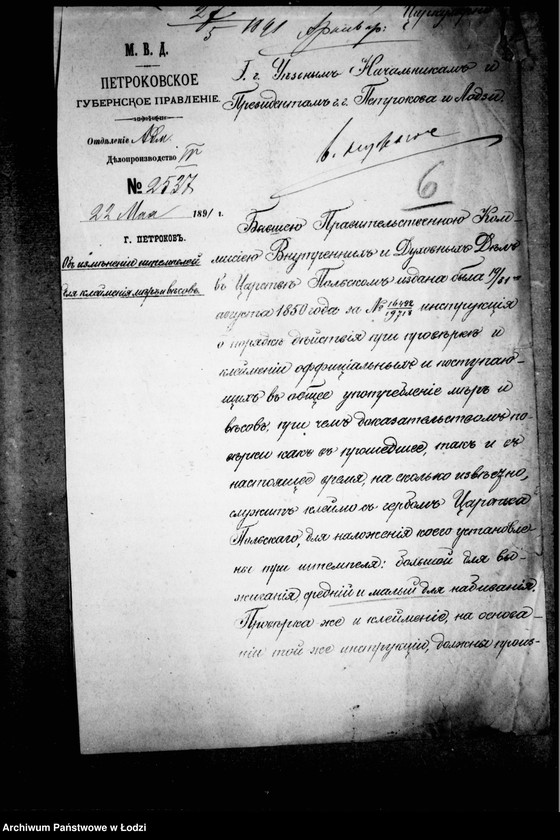 24/5 1891
Циркулярно
М. В. Д.
ПЕТРОКОВСКОЕ
ГУБЕРНСКОЕ ПРАВЛЕНІЕ.
Отдѣленіе Адм.
Дѣлопроизводство IV
№ 2537
22 Мая 1891 г.
Г. ПЕТРОКОВЪ.
Объ измѣненіи штемпелей
для клейменія мѣръ и вѣсовъ.
Г. г. Уѣзднымъ Начальникамъ и
Президентамъ г. г. Петрокова и Лодзи.
6
Бывшею Правительственною Ком-
мисіею Внутреннихъ и Духовныхъ Дѣлъ
въ Царствѣ Польскомъ издана была 19/31
августа 1850 года за № инструкція
о порядкѣ дѣйствія при провѣркѣ и
клейменіи оффиціальныхъ и поступаю-
щихъ въ общее употребленіе мѣръ и
вѣсовъ, при чемъ доказательствомъ по-
вѣрки какъ въ прошедшее, такъ и въ
настоящее время, на сколько извѣстно,
служитъ клеймо съ гербомъ Царства
Польскаго, для наложенія коего установле-
ны три штемпеля: большой для вы-
жиганія, средній и малый для набиванія.
Провѣрка же и клейменіе, на основа-
ніи той же инструкціи, должны произ-
Archiwum Państwowe w Łodzi